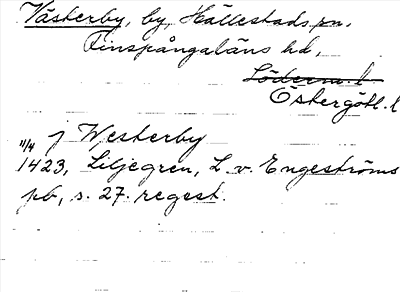 Västerby, by, Hällestads sn,
Finspångaläns hd,
Söderm. l
Östergötl. l
j Westerby
11/4
1423, Liljegren, L. v. Engeströms
pb, s. 27. regest.